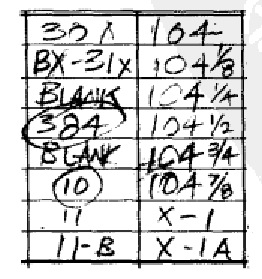 30X 104
BX-31X 104 1/8
BLANK 104 1/4
384 104 1/2
BLANK 104 3/4
10 104 7/8
11 X-1
11-B X-1A